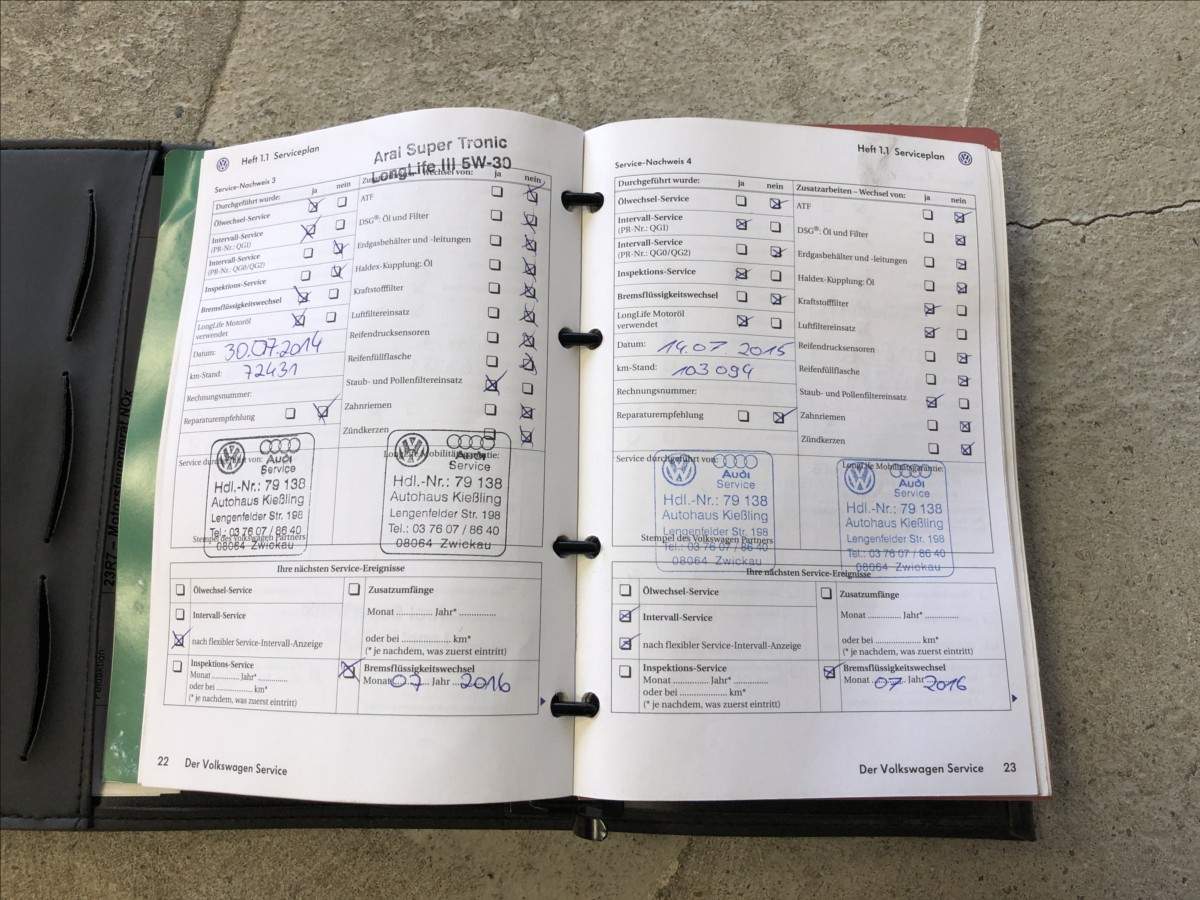 Heft 1.1 Serviceplan
Arai Super Tronic
LongLife III 5W-30
Service-Nachweis 3
Durchgeführt wurde: ja nein
Ölwechsel-Service
Intervall-Service
(PR-Nr.: QG1)
Intervall-Service
(PR-Nr.: QG0/QG2)
Inspektions-Service
Bremsflüssigkeitswechsel
LongLife Motoröl
verwendet
Datum: 30.07.2014
km-Stand: 72431
Rechnungsnummer:
Reparaturempfehlung
Zusatzarbeiten – Wechsel von: ja nein
ATF
DSG®: Öl und Filter
Erdgasbehälter und -leitungen
Haldex-Kupplung: Öl
Kraftstofffilter
Luftfiltereinsatz
Reifendrucksensoren
Reifenfüllflasche
Staub- und Pollenfiltereinsatz
Zahnriemen
Zündkerzen
Service durchgeführt von:
Audi
Service
Hdl.-Nr.: 79 138
Autohaus Kießling
Lengenfelder Str. 198
Tel.: 03 76 07 / 86 40
08064 Zwickau
Stempel des Volkswagen Partners
LongLife Mobilitätsgarantie:
Audi
Service
Hdl.-Nr.: 79 138
Autohaus Kießling
Lengenfelder Str. 198
Tel.: 03 76 07 / 86 40
08064 Zwickau
Ihre nächsten Service-Ereignisse
Ölwechsel-Service
Intervall-Service
nach flexibler Service-Intervall-Anzeige
Inspektions-Service
Monat ............ Jahr* ............
oder bei .................... km*
(* je nachdem, was zuerst eintritt)
Zusatzumfänge
Monat ............ Jahr* ............
oder bei .................... km*
(* je nachdem, was zuerst eintritt)
Bremsflüssigkeitswechsel
Monat 07 Jahr 2016
22 Der Volkswagen Service
Heft 1.1 Serviceplan
Service-Nachweis 4
Durchgeführt wurde: ja nein
Ölwechsel-Service
Intervall-Service
(PR-Nr.: QG1)
Intervall-Service
(PR-Nr.: QG0/QG2)
Inspektions-Service
Bremsflüssigkeitswechsel
LongLife Motoröl
verwendet
Datum: 14.07 2015
km-Stand: 103 094
Rechnungsnummer:
Reparaturempfehlung
Zusatzarbeiten – Wechsel von: ja nein
ATF
DSG®: Öl und Filter
Erdgasbehälter und -leitungen
Haldex-Kupplung: Öl
Kraftstofffilter
Luftfiltereinsatz
Reifendrucksensoren
Reifenfüllflasche
Staub- und Pollenfiltereinsatz
Zahnriemen
Zündkerzen
Service durchgeführt von:
Audi
Service
Hdl.-Nr.: 79 138
Autohaus Kießling
Lengenfelder Str. 198
Tel.: 03 76 07 / 86 40
08064 Zwickau
Stempel des Volkswagen Partners
LongLife Mobilitätsgarantie:
Audi
Service
Hdl.-Nr.: 79 138
Autohaus Kießling
Lengenfelder Str. 198
Tel.: 03 76 07 / 86 40
08064 Zwickau
Ihre nächsten Service-Ereignisse
Ölwechsel-Service
Intervall-Service
nach flexibler Service-Intervall-Anzeige
Inspektions-Service
Monat ............ Jahr* ............
oder bei .................... km*
(* je nachdem, was zuerst eintritt)
Zusatzumfänge
Monat ............ Jahr* ............
oder bei .................... km*
(* je nachdem, was zuerst eintritt)
Bremsflüssigkeitswechsel
Monat 07 Jahr 2016
Der Volkswagen Service 23
23R7 - Motorsteuergerät NOx